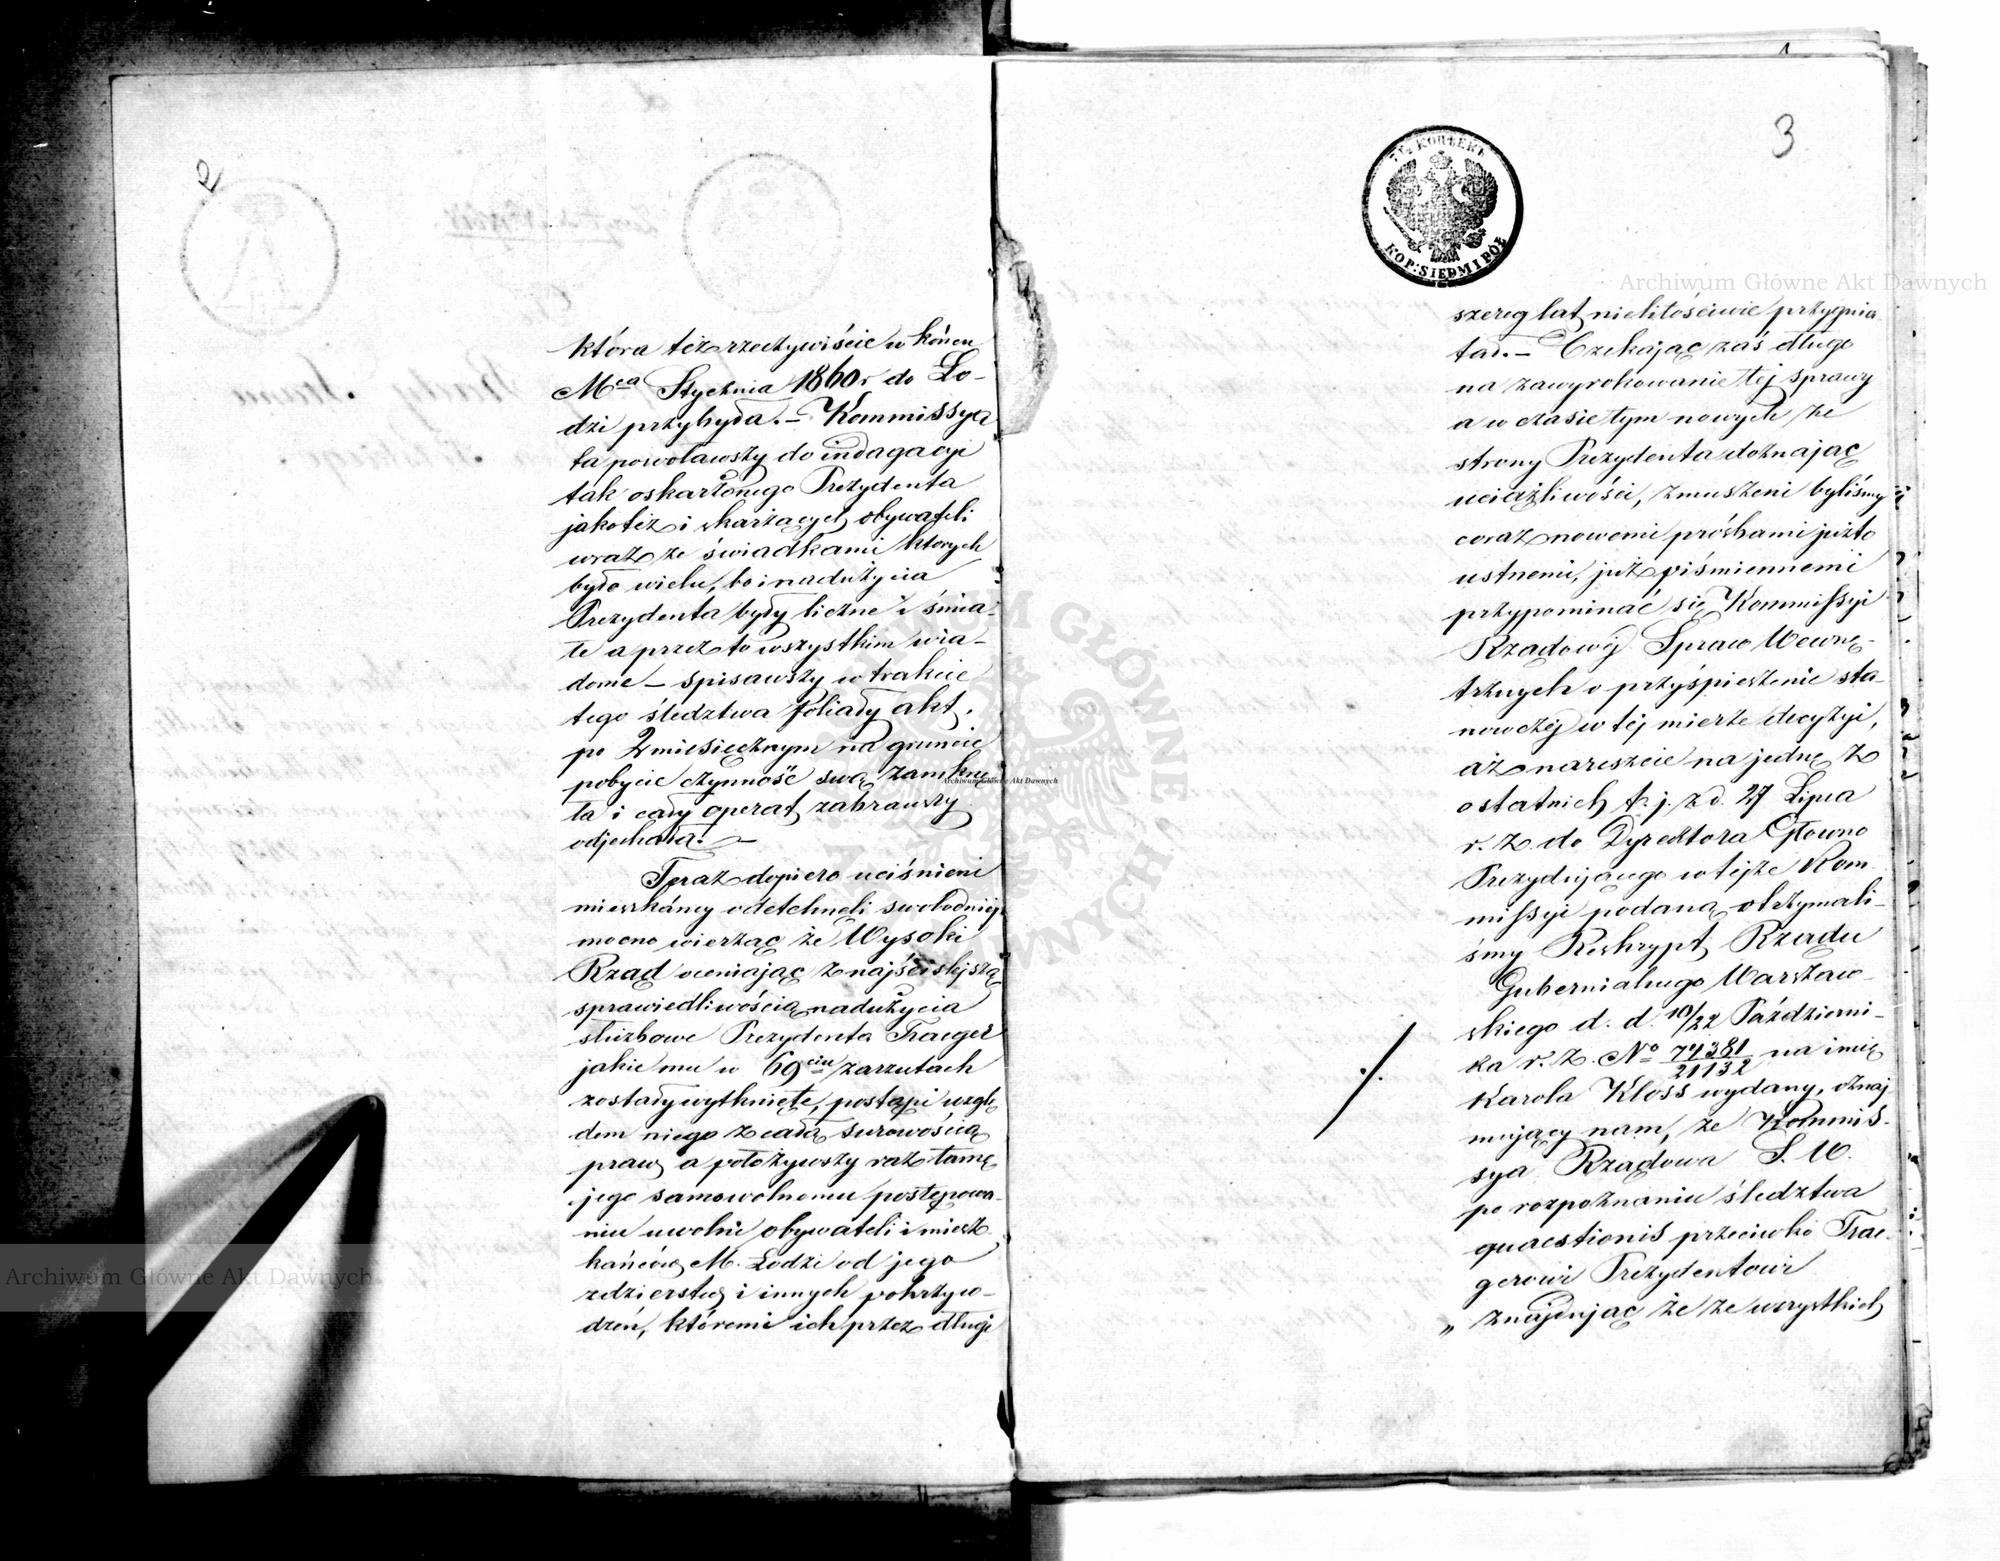 2
która też rzeczywiście w końcu
Mca Stycznia 1860 r do Ło-
dzi przybyła. – Kommissya
ta powoławszy do indagacyi
tak oskarżonego Prezydenta
jako też i skarżących obywateli
wraz ze świadkami których
było wielu, bo i nadużycia
Prezydenta były liczne i śmia-
łe a przez to wszystkim wia-
dome – spisawszy w trakcie
tego śledztwa foliały akt,
po 2 miesięcznym na gruncie
pobycie czynność swą zamknę
ła i cały operat zabrawszy
odjechała. –
Teraz dopiero uciśnieni
mieszkáncy odetchneli swobodniéj
mocno wierząc że Wysoki
Rząd oceniając z najściślejszą
sprawiedliwością nadużycia
służbowe Prezydenta Traeger
jakie mu w 69ciu zarzutach
zostały wytknięte, postąpi wzglę
dem niego z całą surowością
praw, a położywszy raz tamę
jego samowolnemu postępowa-
niu uwolni obywateli i miesz
kańców M. Łodzi od jego
zdzierstw i innych pokrzyw-
dzeń, któremi ich przez długi
3
7½ КОПѢЕКЪ
KOP: SIEDM I PÓŁ
szereg lat, nielitościwie przygnia
tał. – Czekając zaś długo
na zawyrokowanie tej sprawy
a w czasie tym nowych ze
strony Prezydenta doznając
uciążliwości, zmuszeni byliśmy
coraz nowemi prośbami już to
ustnemi, już piśmiennemi
przypominać się Kommissyi
Rządowéj Spraw Wewnę-
trznych o przyśpieszenie sta-
nowczéj w téj mierze decyzyi,
aż nareszcie na jednę z
ostatnich t. j. z d. 27 Lipca
r. z. do Dyrektora Główno
Prezydującego w tejże Kom
missyi podaną otrzymali-
śmy Reskrypt Rządu
Gubernialnego Warszaw-
skiego d. d. 10/22 Październi-
ka r. z. No 77381/21132 na imię
Karola Kloss wydany, oznaj
mujący nam, że Kommis-
sya Rządowa S. W.
po rozpoznaniu śledztwa
quaestionis przeciwko Trae-
gerowi Prezydentowi
„ znajdując że ze wszystkich
./.
Archiwum Główne Akt Dawnych
Archiwum Główne Akt Dawnych
Archiwum Główne Akt Dawnych
ARCHIWUM GŁÓWNE AKT DAWNYCH